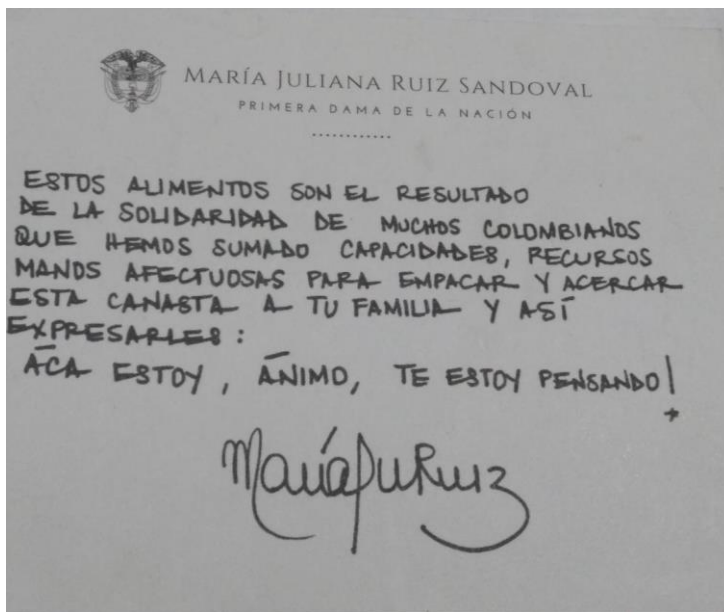 MARÍA JULIANA RUIZ SANDOVAL
PRIMERA DAMA DE LA NACIÓN
ESTOS ALIMENTOS SON EL RESULTADO
DE LA SOLIDARIDAD DE MUCHOS COLOMBIANOS
QUE HEMOS SUMADO CAPACIDADES, RECURSOS
MANOS AFECTUOSAS PARA EMPACAR Y ACERCAR
ESTA CANASTA A TU FAMILIA Y ASÍ
EXPRESARLES:
ÁCA ESTOY, ÁNIMO, TE ESTOY PENSANDO!
MaríaJuRuiz